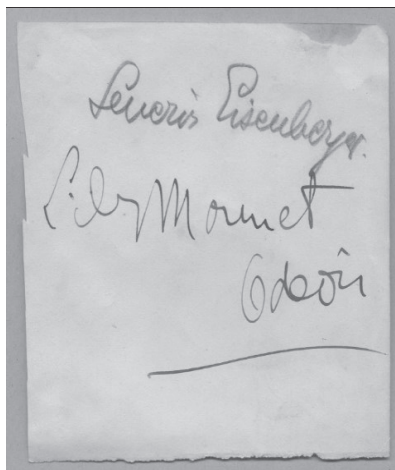 Severin Eisenberger.
Lily Mounet
Odéon